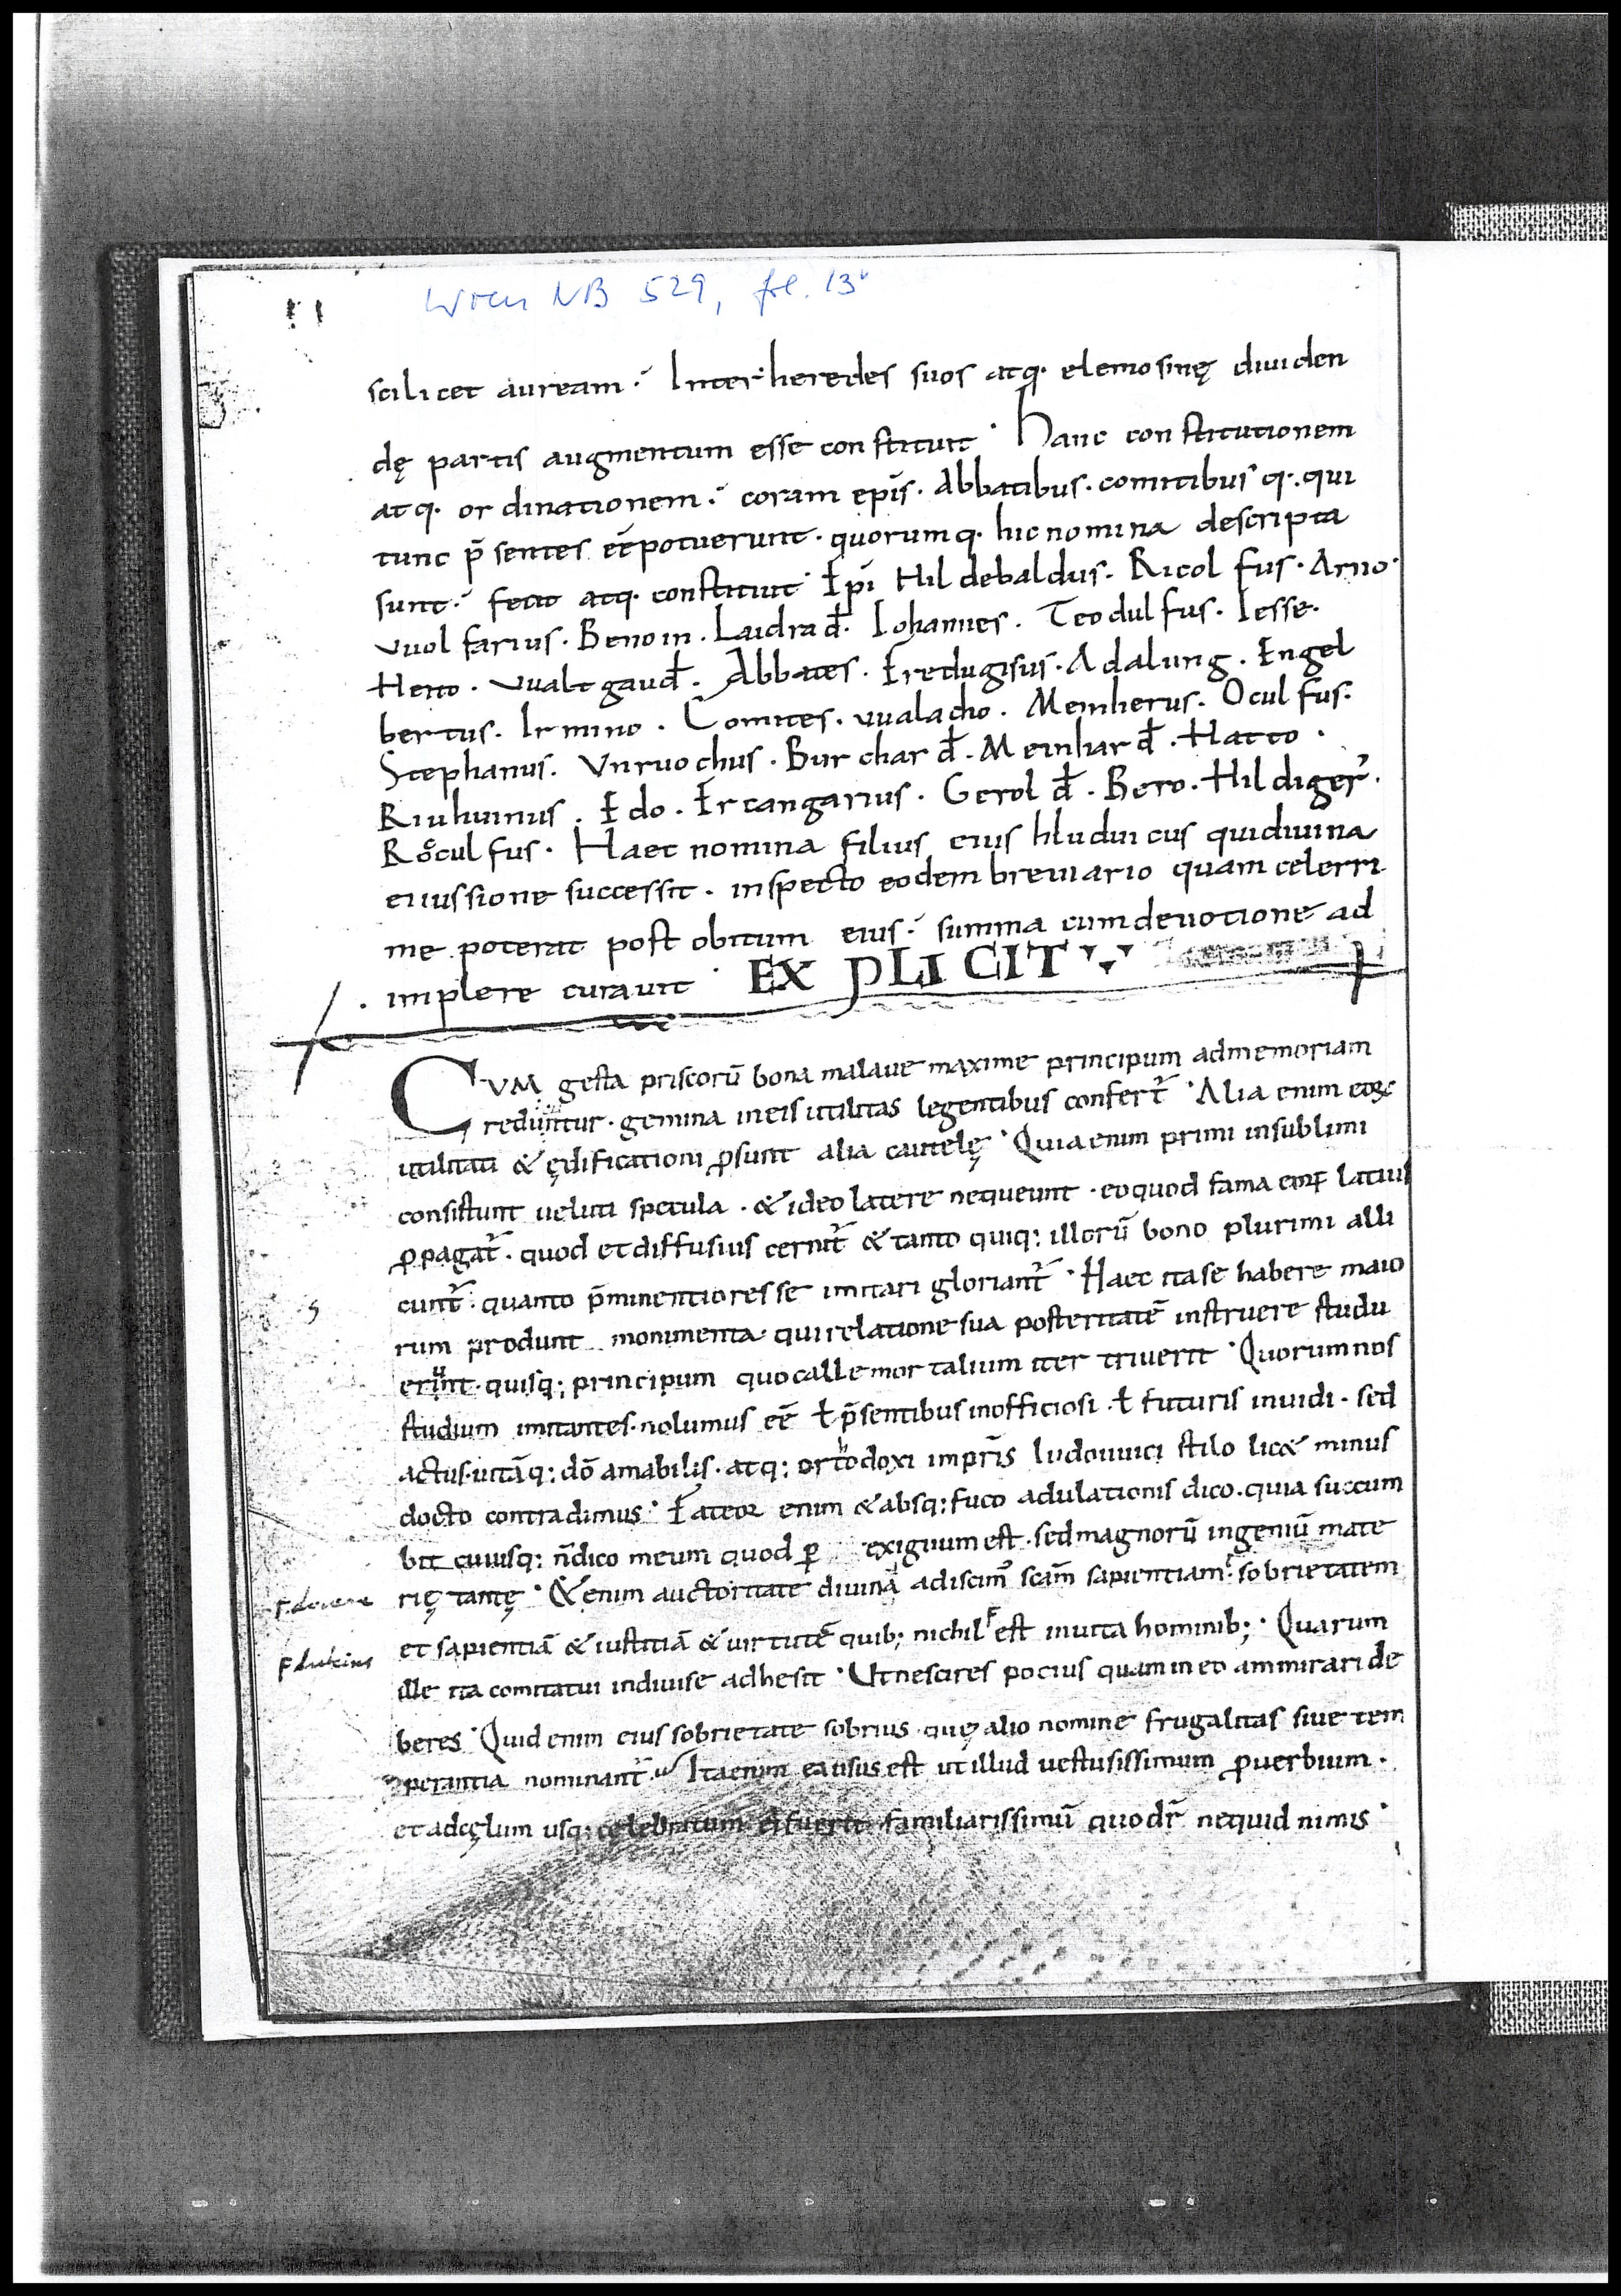 Wien NB 529, fol. 13v
scilicet auream. Inter heredes suos atq· elemosinę diuiden
dę partis augmentum esse constituit· Hanc constitutionem
atq· ordinationem. coram ep̄is· Abbatibus· comitibus q·· qui
tunc p̄sentes eē potuerunt· quorumq· hic nomina descripta
sunt. fecit atq· constituit· Ep̄i Hildebaldus· Ricolfus· Arno·
vuolfarius· Benoin· Laidrađ· Iohannes· Teodulfus· Iesse·
Heito· vualtgauđ· Abbates· Fredugisus· Adalung· Engel
bertus· Irmino· Comites· vualacho· Meinherus· Oculfus·
Stephanus· Vnruochus· Burcharđ· Meinharđ· Hatto·
Rihuuinus· Edo· Ercangarius· Gerolđ· Bero· Hildiger̓·
Roͦculfus· Haec nomina filius eius hluduicus qui diuina
eiiussione successit· inspecto eodem breuiario quam celerri
me poterat post obitum eius. summa cum deuotione ad
implere curauit· EXPLICIT
CVM gesta priscorū bona malaue maxime principum ad memoriam
reducuntur· gemina in eis utilitas legentibus confert᷑· Alia enim eoꝝ
utilitati & ędificationi ꝓsunt alia cautelę· Quia enim primi in sublimi
consistunt ueluti specula· & ideo latere nequeunt· eo quod fama eoꝝ latius
ꝓpagat᷑· quod et diffusius cernit᷑ & tanto quiq; illorū bono plurimi alli
ciunt᷑· quanto p̄minentiores se imitari gloriant᷑· Haec ita se habere maio
rum produnt monimenta· qui relatione sua posteritatē instruere studu
erunt· quisq; principum quo calle mortalium iter triuerit· Quorum nos
studium imitantes· nolumus eē ł p̄sentibus inofficiosi· ł futuris inuidi· sed
actus· uitāq; dō amabilis· atq; ortʰodoxi imp̄ris ludouuici stilo lic& minus
docto contradimus· Fateor enim & absq; fuco adulationis dico· quia succum
bit cuiusq; n̄ dico meum quod ꝑ exiguum est· sed magnorū ingeniū mate
rię tantę· & enim auctoritate diuina adiscim᷒ scām sapientiam· sobrietatem
et sapientiā & iustitiā & uirtutē quib; nichil est in uita hominib;· Quarum
ille ita comitatui indiuise adhesit· Ut nescires pocius quam in eo ammirari de
beres· Quid enim eius sobrietate sobrius· quę alio nomine frugalitas siue tem
perantia nominant᷑· Ita enim ea usus est ut illud uestusissimum ꝓuerbium·
et ad cęlum usq; celebratum ei fuerit familiarissimū quod dr̄ nequid nimis·